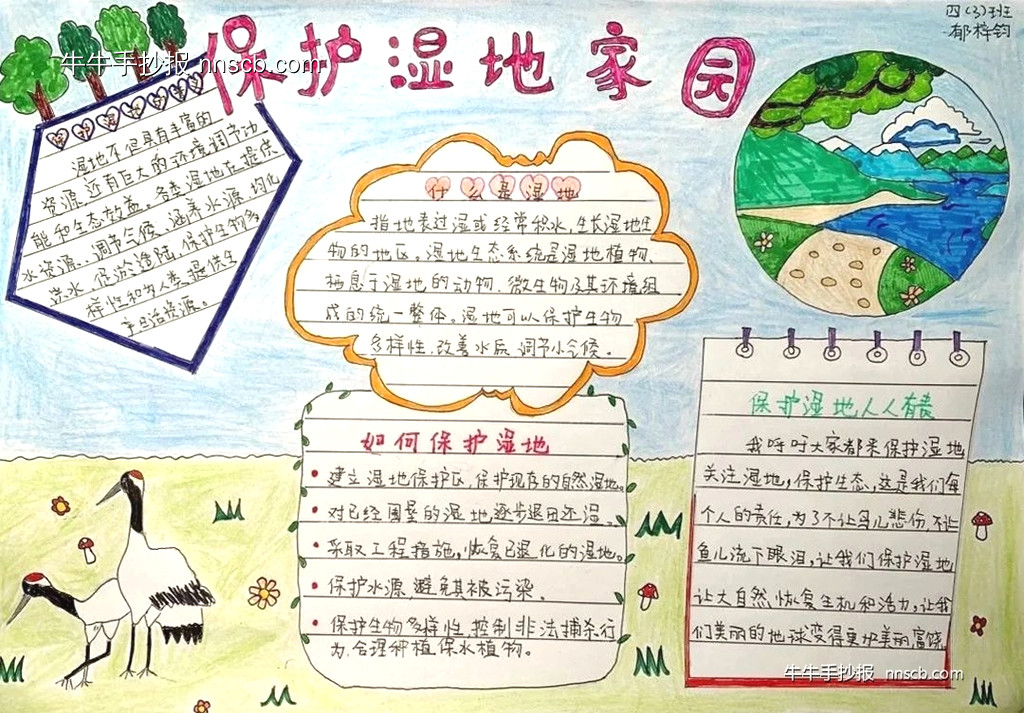 四(3)班
郁梓钧
保护湿地家园
牛牛手抄报 nnscb.com
湿地不但具有丰富的
资源,还有巨大的环境调节功
能和生态效益。各类湿地在提供
水资源、调节气候、涵养水源、均化
洪水、促淤造陆、保护生物多
样性和为人类提供生
产生活资源。
什么是湿地
指地表过湿或经常积水,生长湿地生
物的地区。湿地生态系统是湿地植物、
栖息于湿地的动物、微生物及其环境组
成的统一整体。湿地可以保护生物
多样性,改善水后,调节小气候。
如何保护湿地
建立湿地保护区,保护现有的自然湿地。
对已经围垦的湿地逐步退田还湿。
采取工程措施,恢复已退化的湿地。
保护水源,避免其被污染。
保护生物多样性,控制非法捕杀行
为,合理种植保水植物。
保护湿地人人有责
我呼吁大家都来保护湿地
关注湿地,保护生态,这是我们每
个人的责任,为了不让鸟儿悲伤,不让
鱼儿流下眼泪,让我们保护湿地
让大自然恢复生机和活力,让我
们美丽的地球变得更加美丽富饶。
牛牛手抄报 nnscb.com